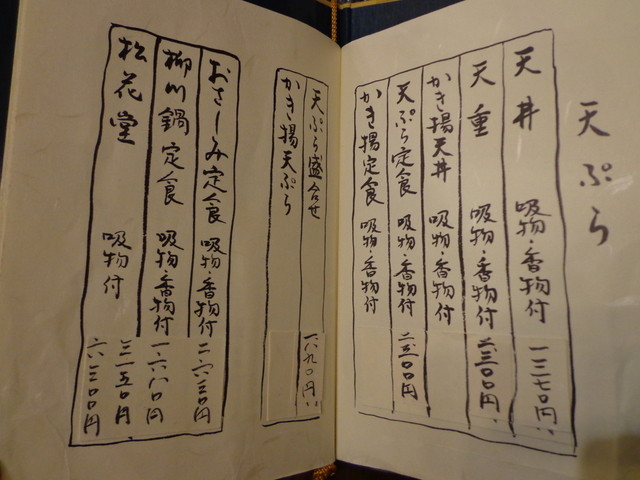 天ぷら
天丼 吸物・香物付 一三七〇円
天重 吸物・香物付 二三〇〇円
かき揚天丼 吸物・香物付
天ぷら定食 吸物・香物付
かき揚定食 吸物・香物付
天ぷら盛合せ 一六九〇円
かき揚天ぷら
おさしみ定食 吸物・香物付 二・六三〇円
柳川鍋定食 吸物・香物付 一・六八〇円
松花堂 吸物付